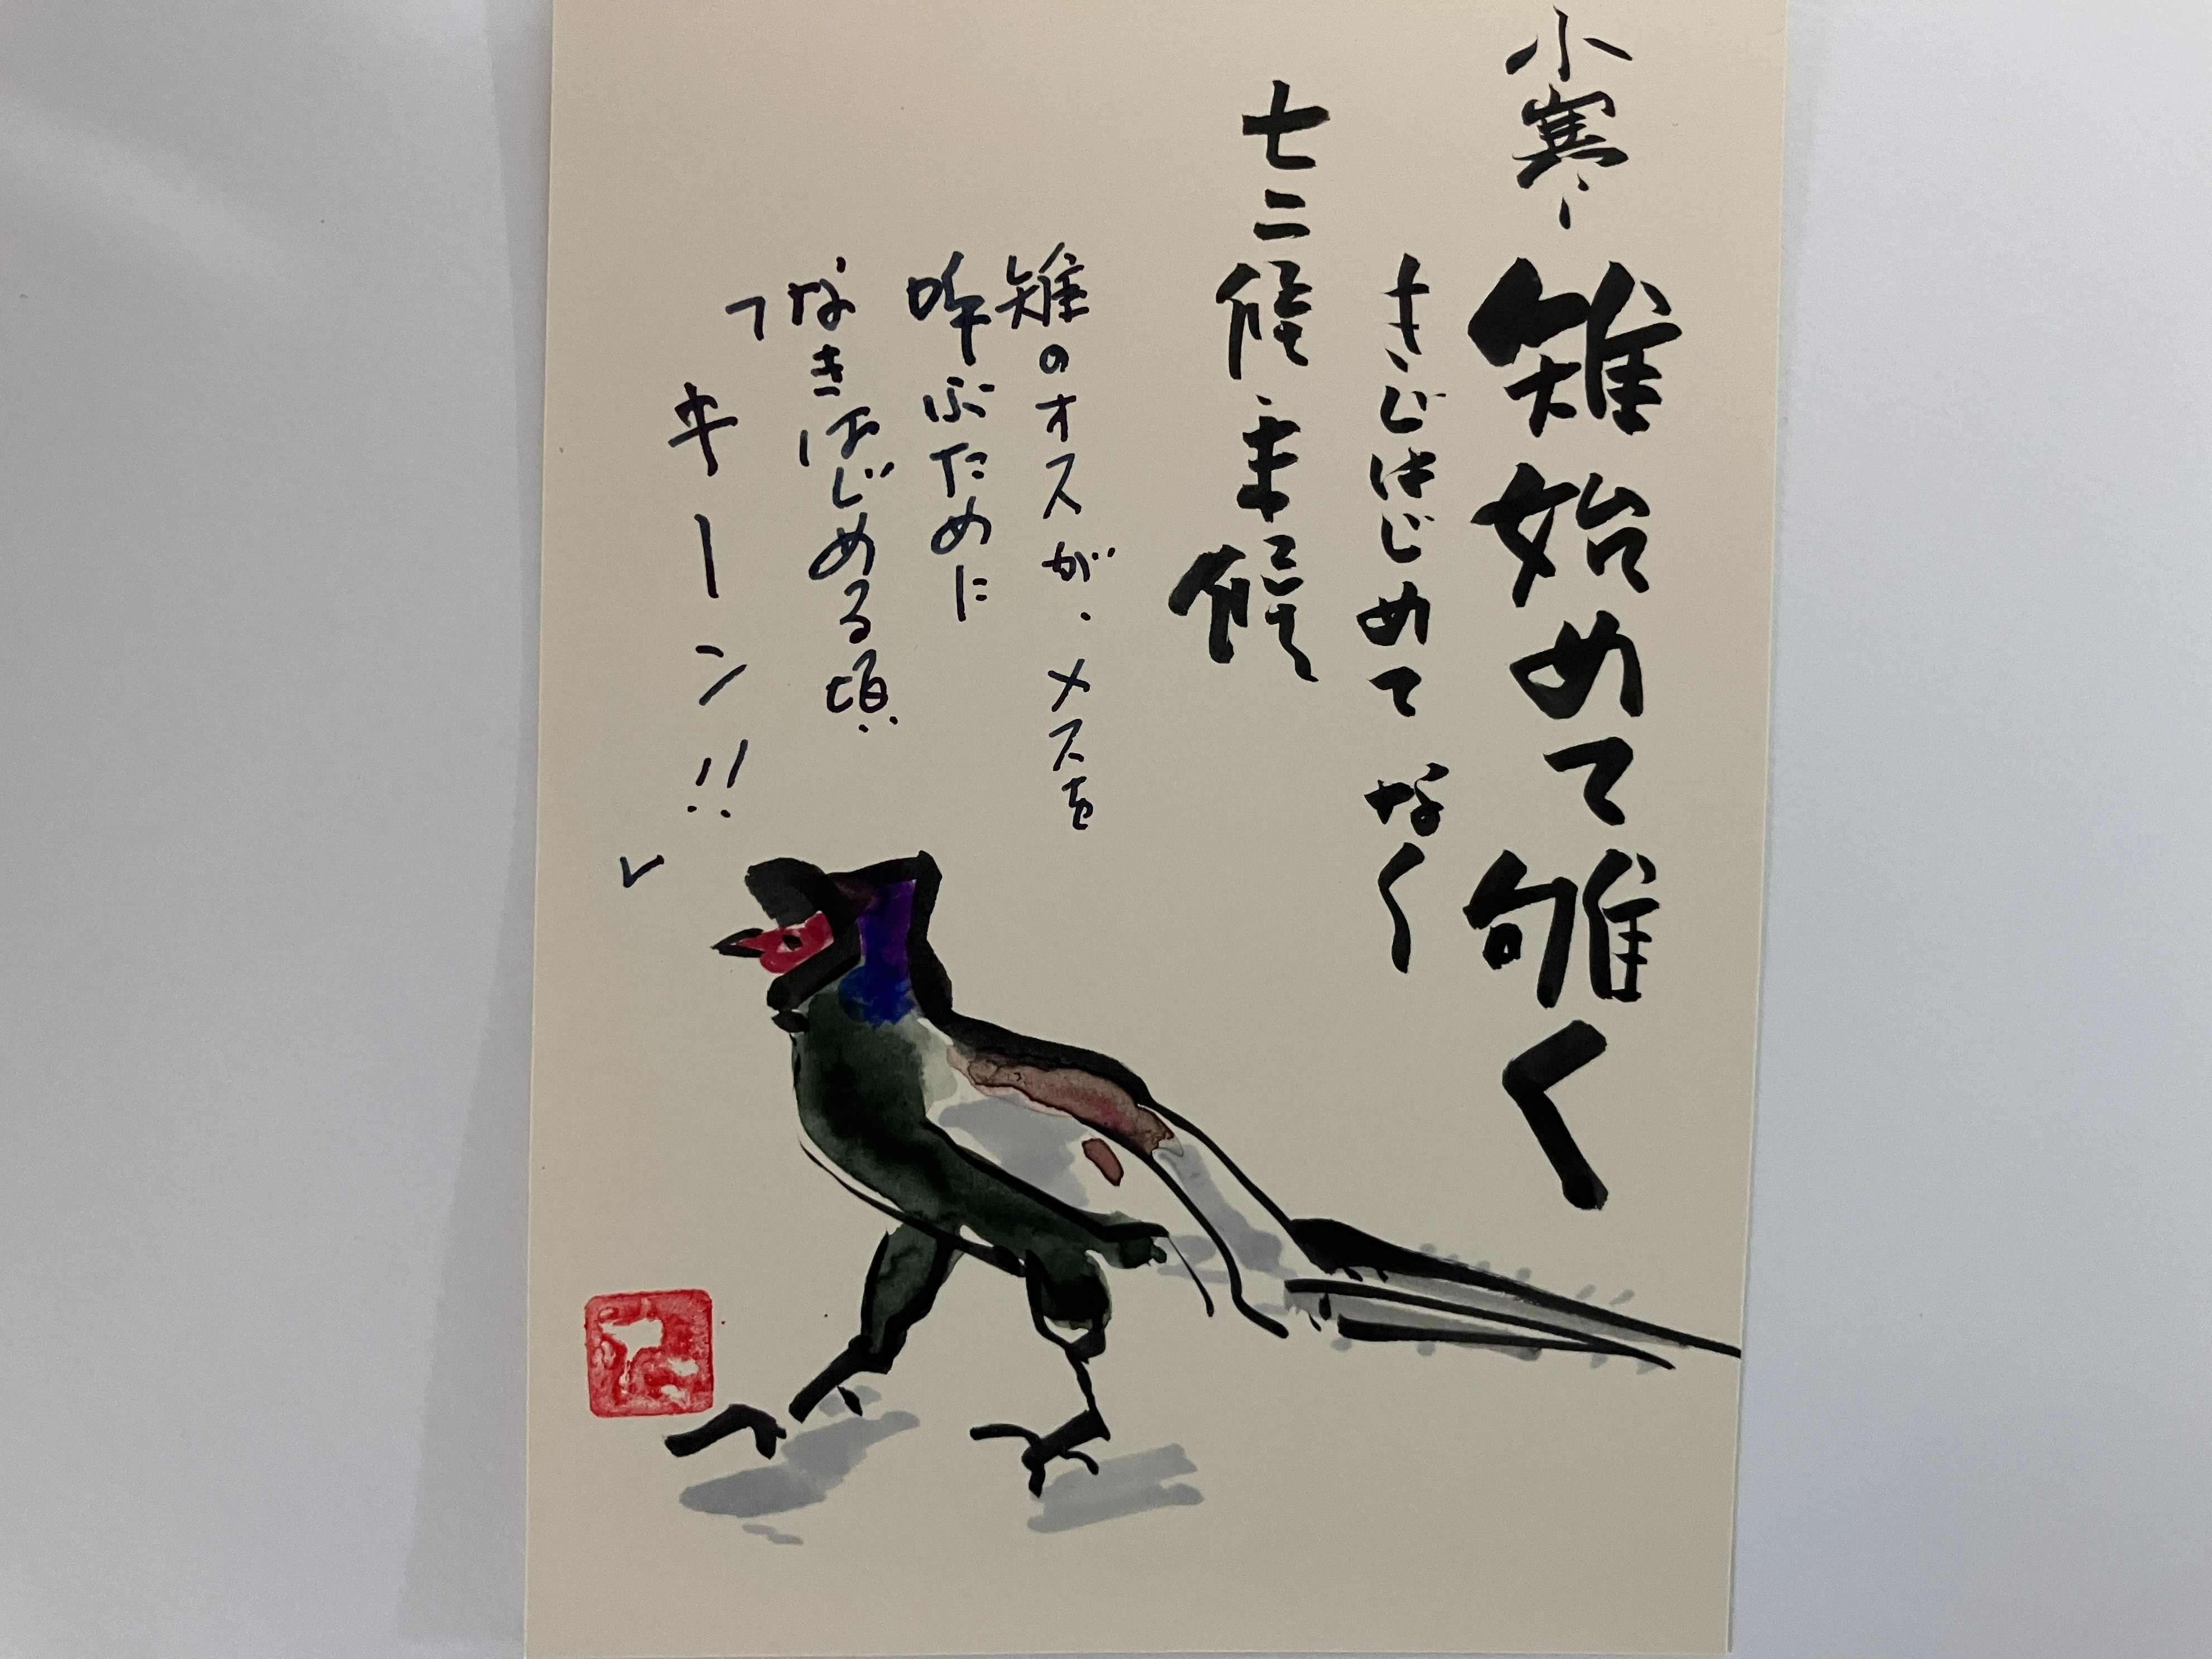 小寒、雉始めて雊く
きじはじめてなく
七二候末候
雉のオスが、メスを
呼ぶために
なきはじめる頃。
「キーン!!」